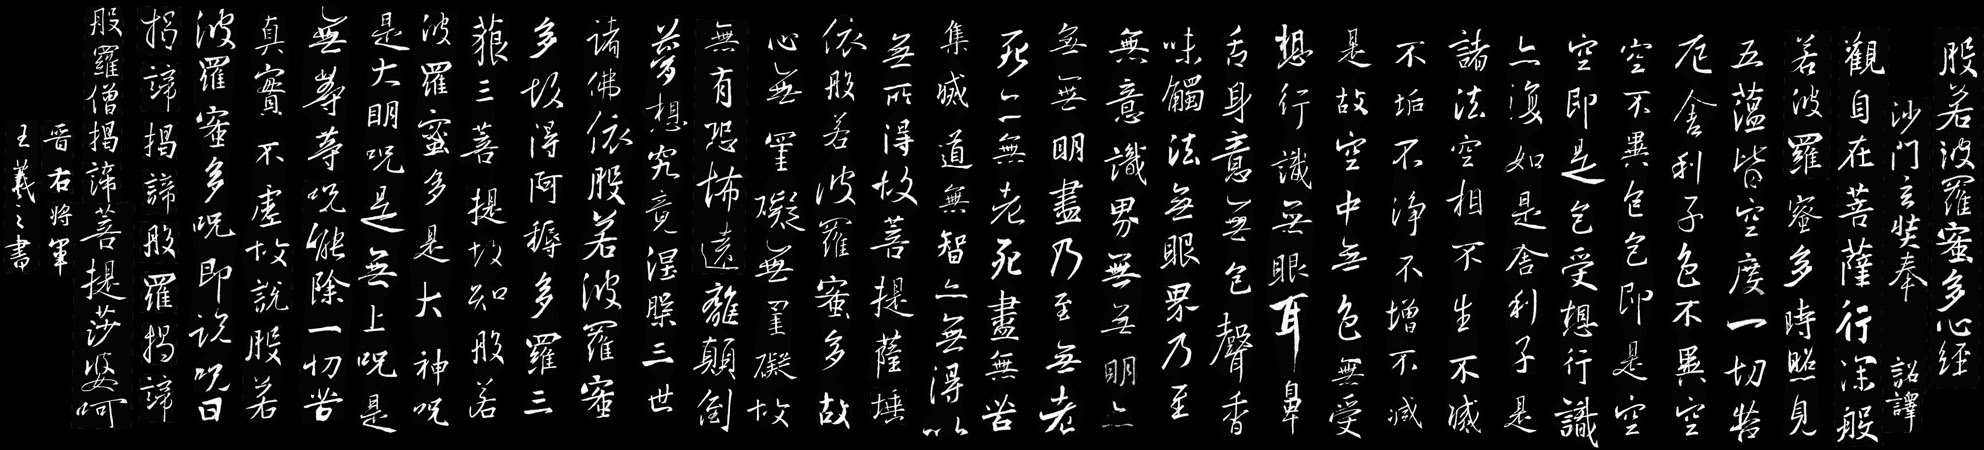 般若波羅蜜多心経
沙門玄奘奉 詔譯
觀自在菩薩行深般
若波羅蜜多時照見
五蘊皆空度一切苦
厄舍利子色不異空
空不異色色即是空
空即是色受想行識
亦復如是舍利子是
諸法空相不生不滅
不垢不淨不增不減
是故空中無色無受
想行識無眼耳鼻
舌身意無色聲香
味觸法無眼界乃至
無意識界無無明亦
無無明盡乃至無老
死亦無老死盡無苦
集滅道無智亦無得以
無所得故菩提薩埵
依般若波羅蜜多故
心無罣礙無罣礙故
無有恐怖遠離顛倒
夢想究竟涅槃三世
諸佛依般若波羅蜜
多故得阿耨多羅三
藐三菩提故知般若
波羅蜜多是大神呪
是大明呪是無上呪是
無等等呪能除一切苦
真實不虛故說般若
波羅蜜多呪即説呪曰
揭諦揭諦般羅揭諦
般羅僧揭諦菩提莎婆呵
晉右將軍
王羲之書